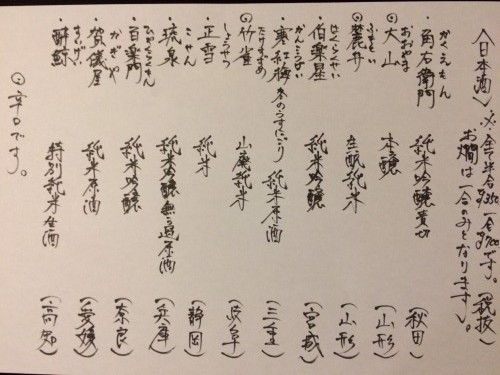 〈日本酒〉 ※全て半合350 一合700です。(税抜)
お燗は一合のみとなります。
かくえもん
・角右衛門 純米吟醸 (秋田)
おおやま
◎大山 本醸 (山形)
ふもとい
◎麓井 生酛純米 (山形)
はくらくせい
・伯楽星 純米吟醸 (宮城)
かんこうばい
・寒紅梅 冬のうすにごり 純米原酒 (三重)
たけすずめ
◎竹雀 山廃純米 (岐阜)
しょうせつ
・正雪 純米 (静岡)
こせん
・琥泉 純米吟醸無ろ過原酒 (兵庫)
ひゃくらくもん
・百楽門 純米吟醸 (奈良)
かぎや
・賀儀屋 純米原酒 (愛媛)
すいげい
・酔鯨 特別純米生酒 (高知)
◎辛口です。